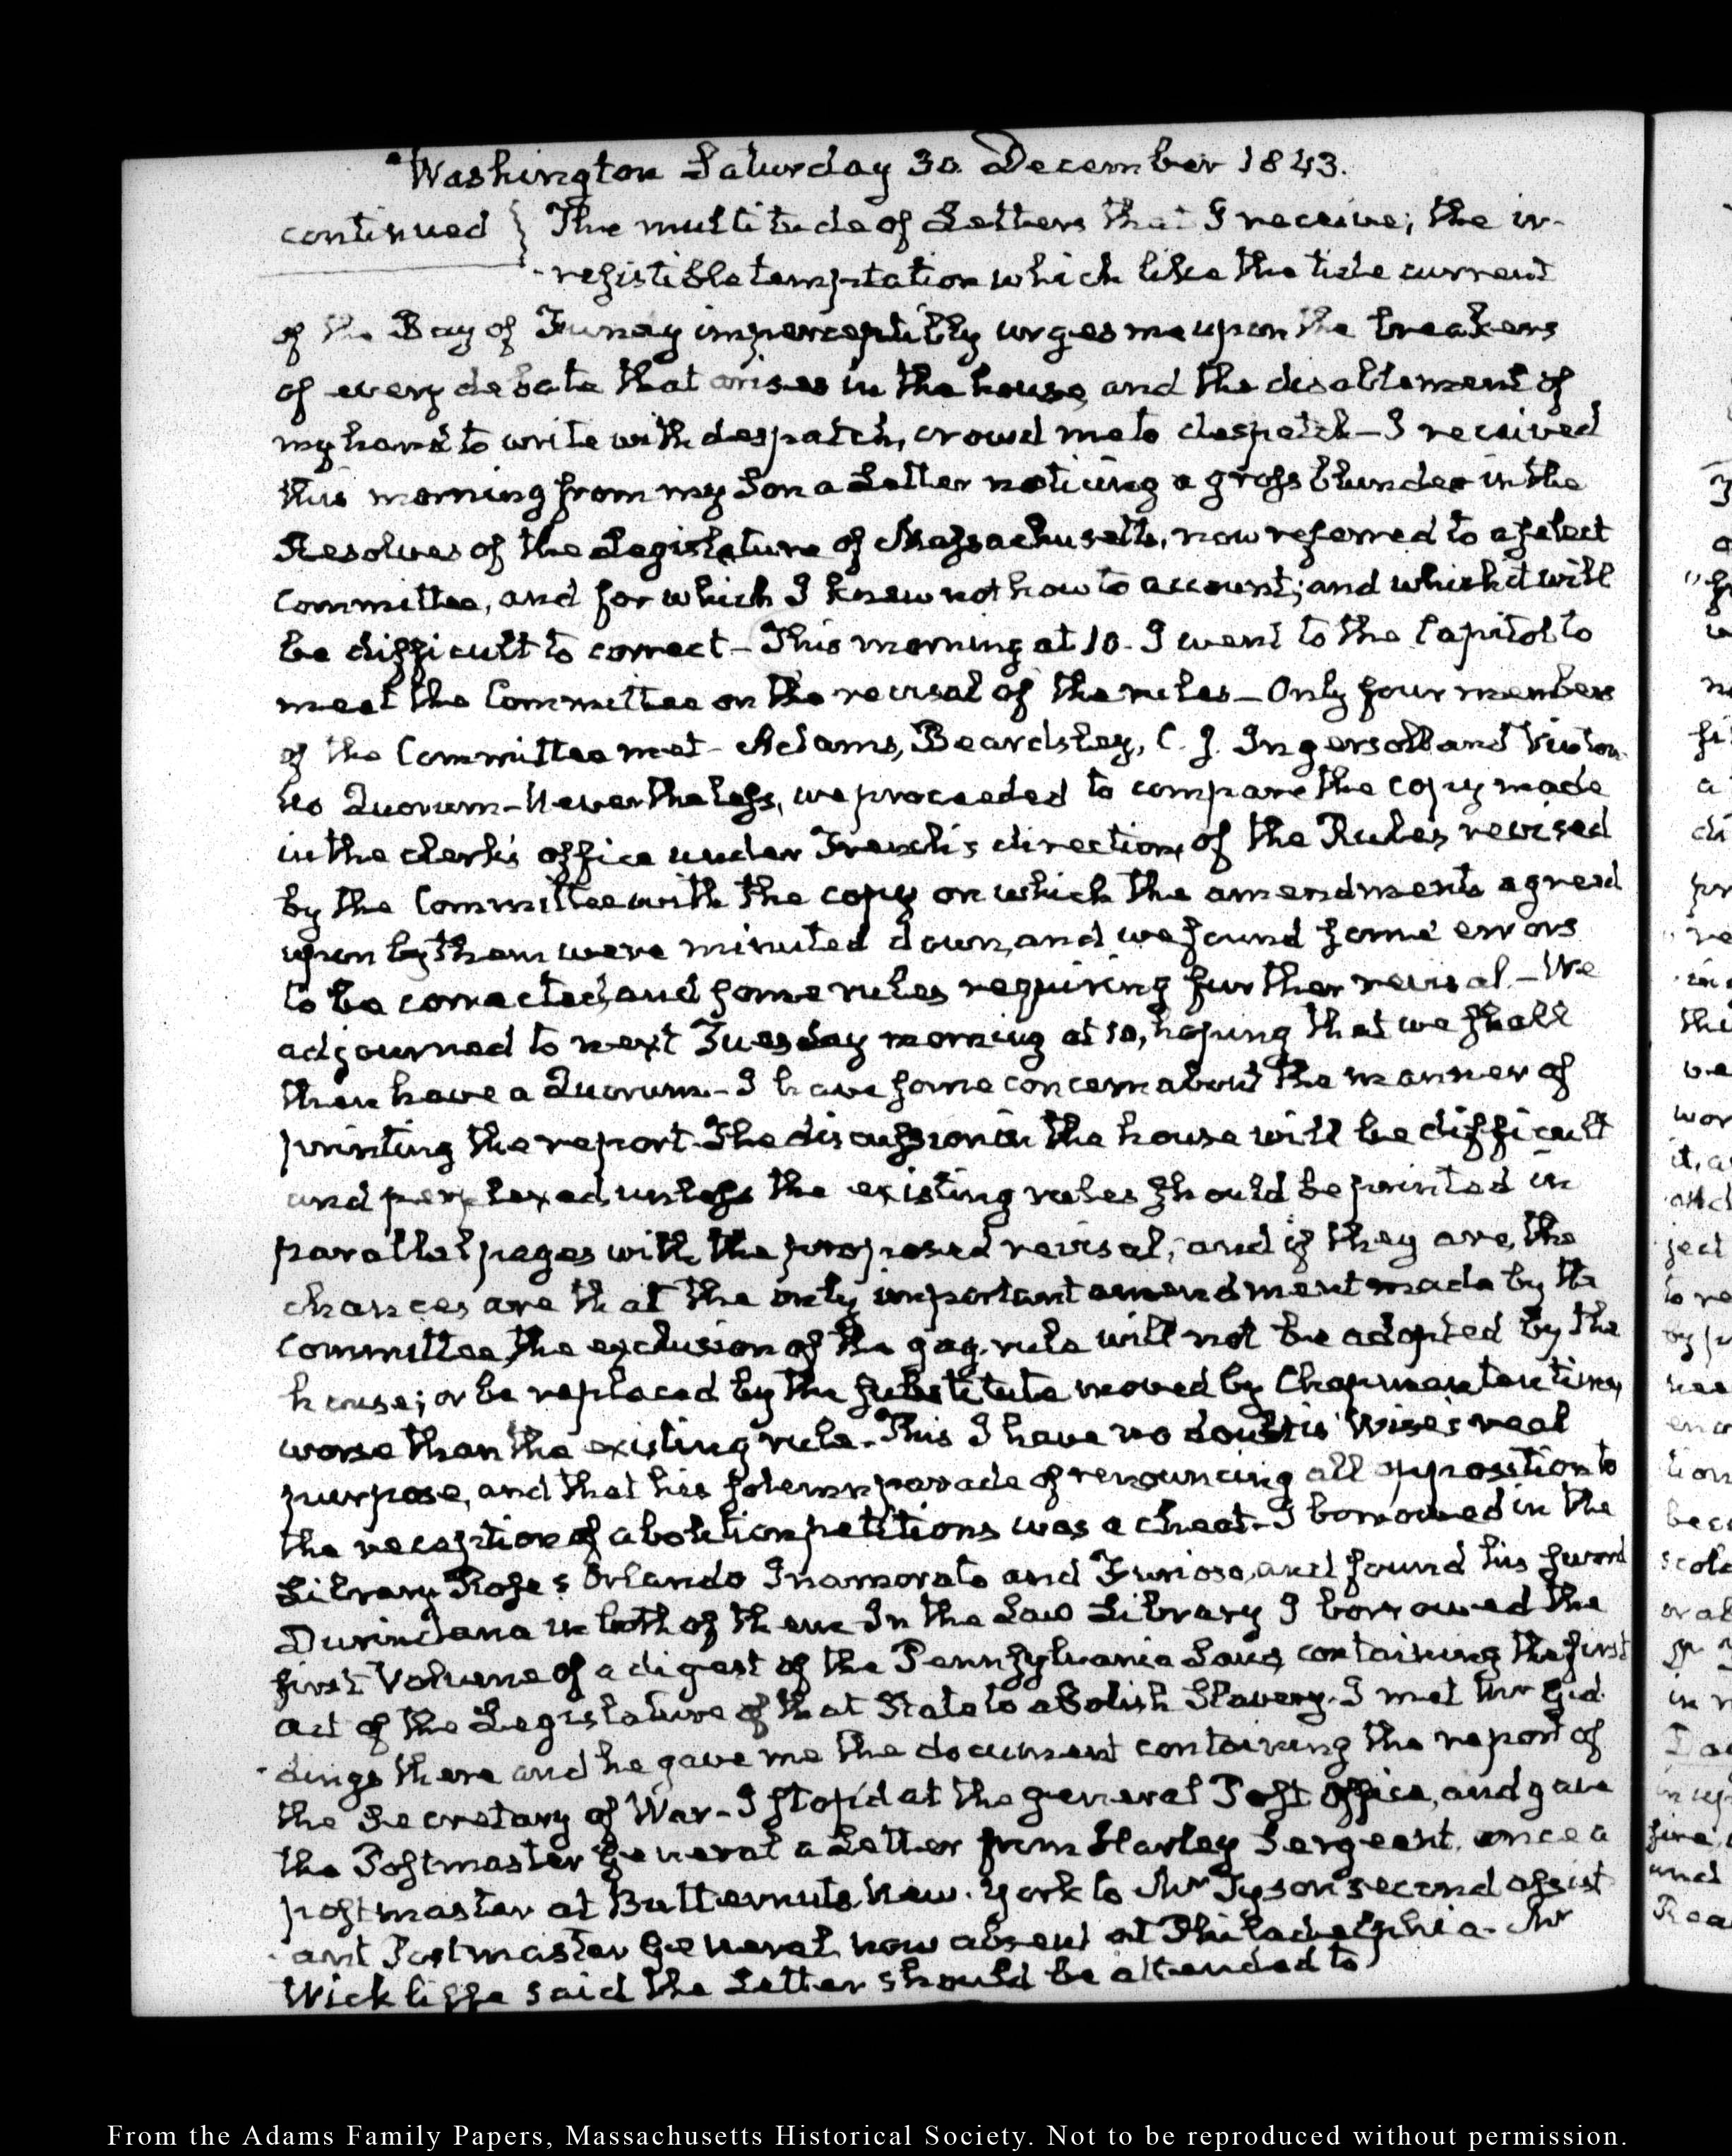 Washington Saturday 30. December 1843.
continued } The multitude of Letters that I receive; the ir-
-resistible temptation which like the tide current
of the Bay of Funday imperceptibly urges me upon the breakers
of every debate that arises in the house, and the disablement of
my hand to write with despatch, crowd me to despatch – I received
this morning from my Son a Letter noticing a gross blunder in the
Resolves of the Legislature of Massachusetts, now referred to a select
Committee, and for which I know not how to account; and which it will
be difficult to correct – This morning at 10. I went to the Capitol to
meet the Committee on the revisal of the rules – Only four members
of the Committee met – Adams, Beardsley, C. J. Ingersoll and Vinton.
No Quorum – Nevertheless, we proceeded to compare the copy made
in the clerk's office under French's direction, of the Rules revised
by the Committee with the copy on which the amendments agreed
upon by them were minuted down, and we found some errors
to be corrected, and some rules requiring further revisal. – We
adjourned to next Tuesday morning at 10, hoping that we shall
then have a Quorum. – I have some concern about the manner of
printing the report. The discussion in the house will be difficult
and perplexed, unless the existing rules should be printed in
parallel pages with the proposed revisal; and if they are, the
chances are that the only important amendment made by the
Committee, the exclusion of the gag-rule will not be adopted by the
house; or be replaced by the substitute moved by Chapman ten times
worse than the existing rule. This I have no doubt is Wise's real
purpose, and that his solemn parade of renouncing all opposition to
the reception of abolition petitions was a cheat. – I borrowed in the
Library Rose's Orlando Inamorato and Furioso, and found his sword
Durindana in both of them. In the Law Library I borrowed the
first Volume of a digest of the Pennsylvania Laws, containing the first
act of the Legislature of that State to abolish Slavery. I met Mr Gid-
-dings there and he gave me the document containing the report of
the Secretary of War – I stop'd at the general Post Office, and gave
the Postmaster General a Letter from Harley Sergeant, once a
postmaster at Butternuts, New-York to Mr Tyson second assist-
-ant Postmaster General, now absent at Philadelphia. Mr
Wickliffe said the Letter should be attended to
From the Adams Family Papers, Massachusetts Historical Society. Not to be reproduced without permission.